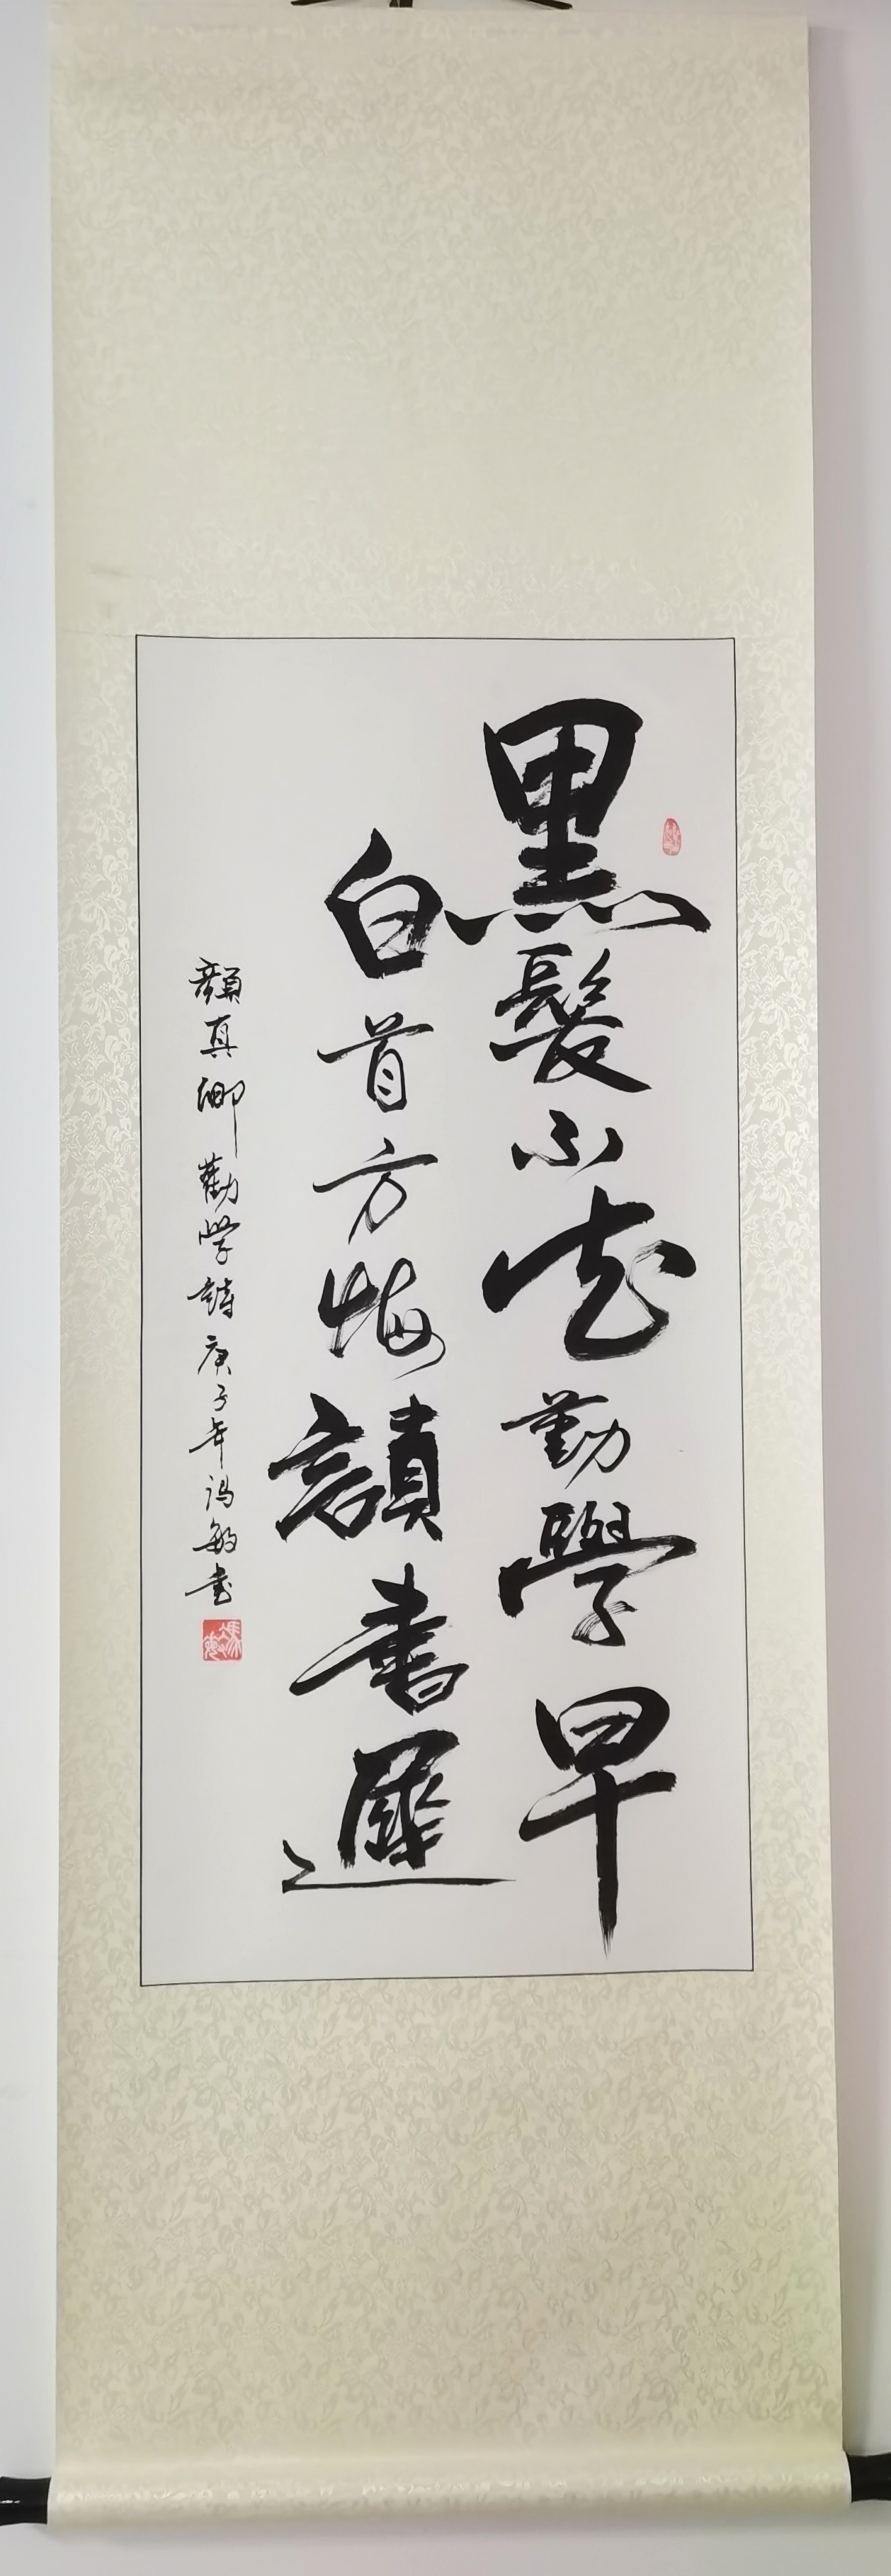 黑髮不知勤學早
白首方悔讀書遲
顏真卿勸学詩庚子年冯敏书
馮敏